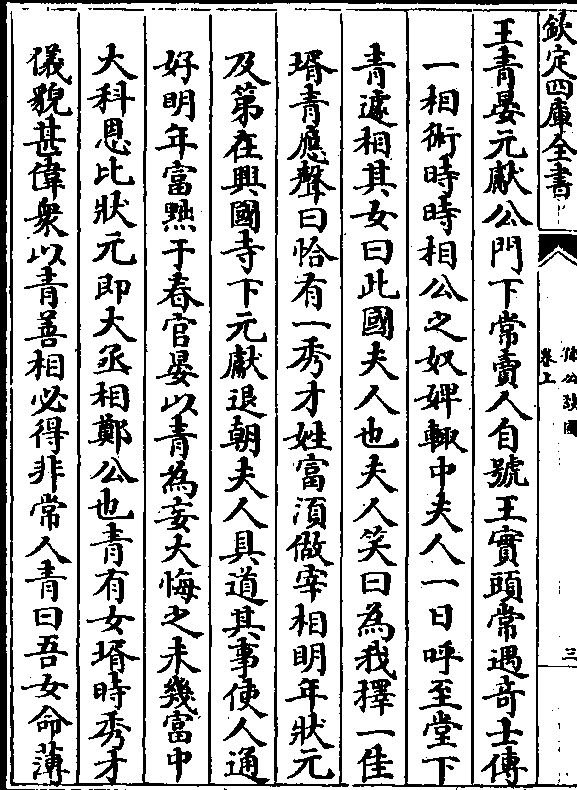 欽定四庫全書
卷上
三
王青晏元獻公門下常賣人自號王實頭常遇奇士傳
一相術時時相公之奴婢輙中夫人一日呼至堂下
青遽相其女曰此國夫人也夫人笑曰為我擇一佳
壻青應聲曰恰有一秀才姓富須做宰相明年狀元
及第在興國寺下元獻退朝夫人具道其事使人通
好明年富黜于春官晏以青為妄大悔之未幾富中
大科恩比狀元即大丞相鄭公也青有女壻時秀才
儀貌甚偉衆以青善相必得非常人青曰吾女命薄